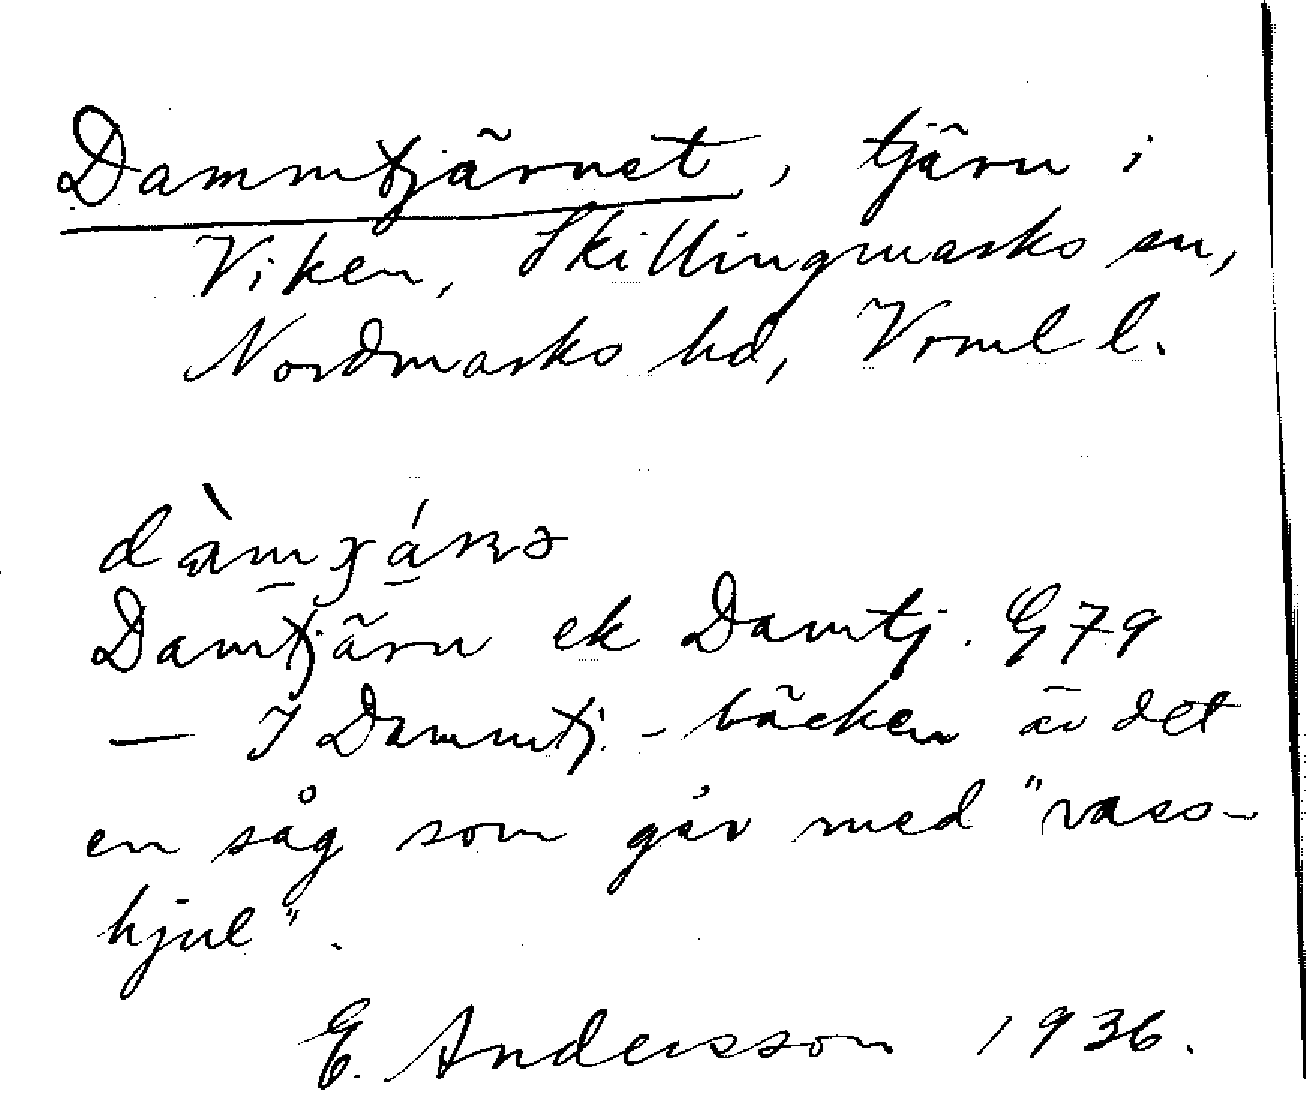 Dammtjärnet, tjärn i
Viken, Skillingmarks sn,
Nordmarks hd, Vrml l.
Damtjärn ek Damtj. G79
— I Dammtj.-bäcken är det
en såg som går med "vass-
hjul".
E. Andersson 1936.